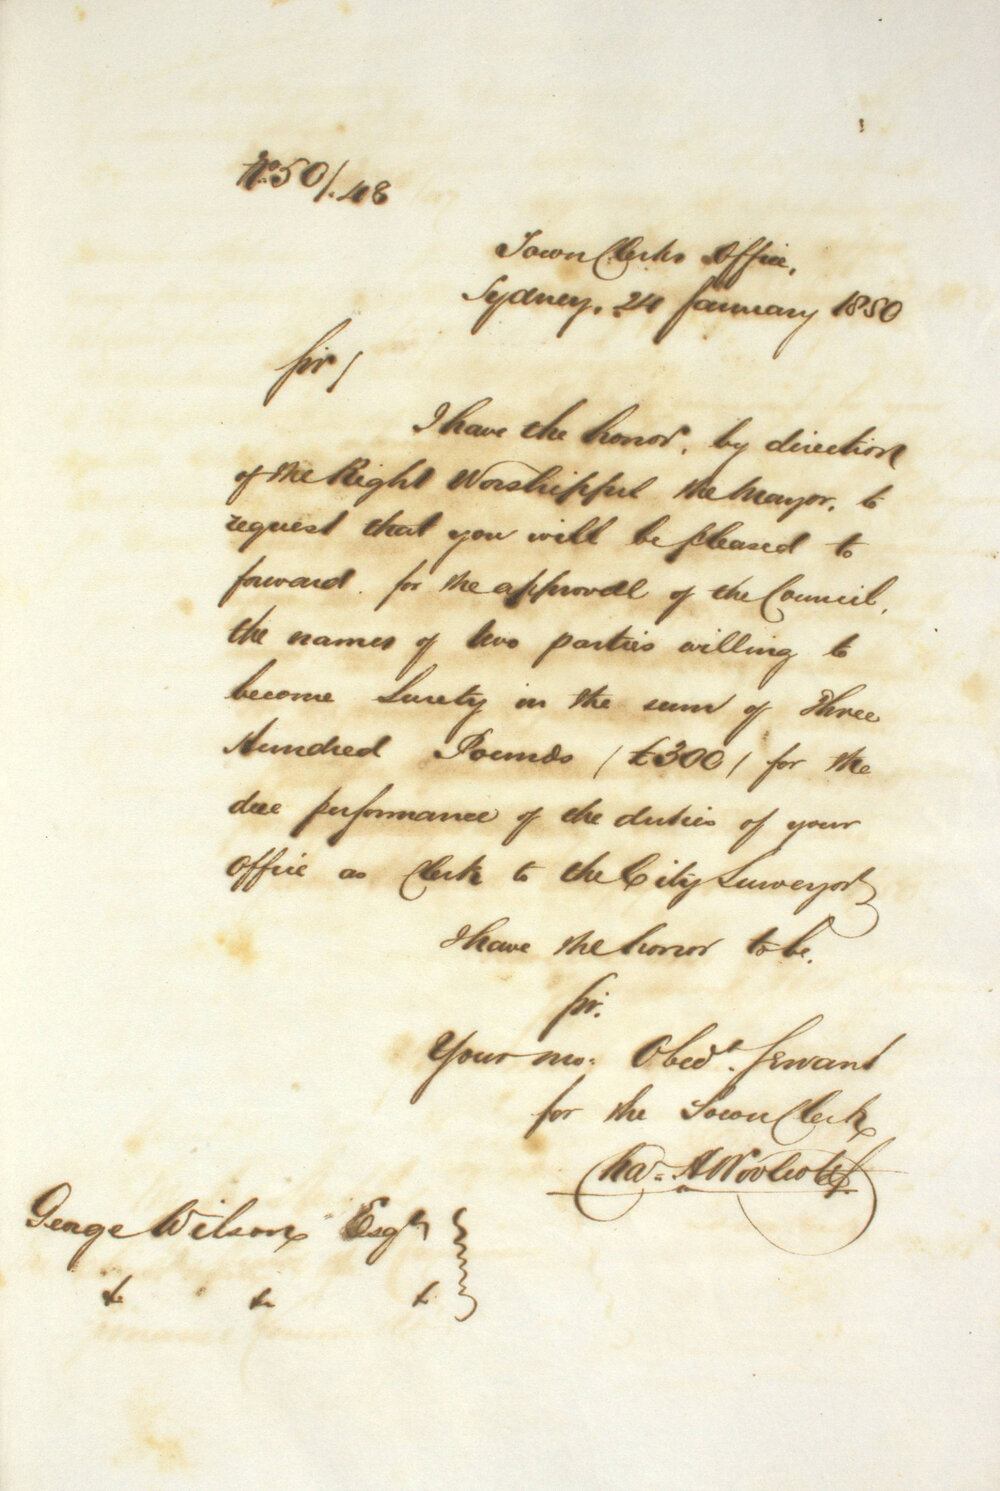 No. 50/.48
Town Clerks Office,
Sydney, 24 January 1850
Sir/
I have the honor, by direction
of the Right Worshipful the Mayor, to
request that you will be pleased to
forward, for the approval of the Council,
the names of two parties willing to
become Surety in the sum of Three
Hundred Pounds (£300) for the
due performance of the duties of your
Office as Clerk to the City Surveyor
I have the honor to be,
Sir,
Your mo: Obedt. Servant
for the Town Clerk
Chas. H Woolcott
George Wilson Esqr
&c &c &c